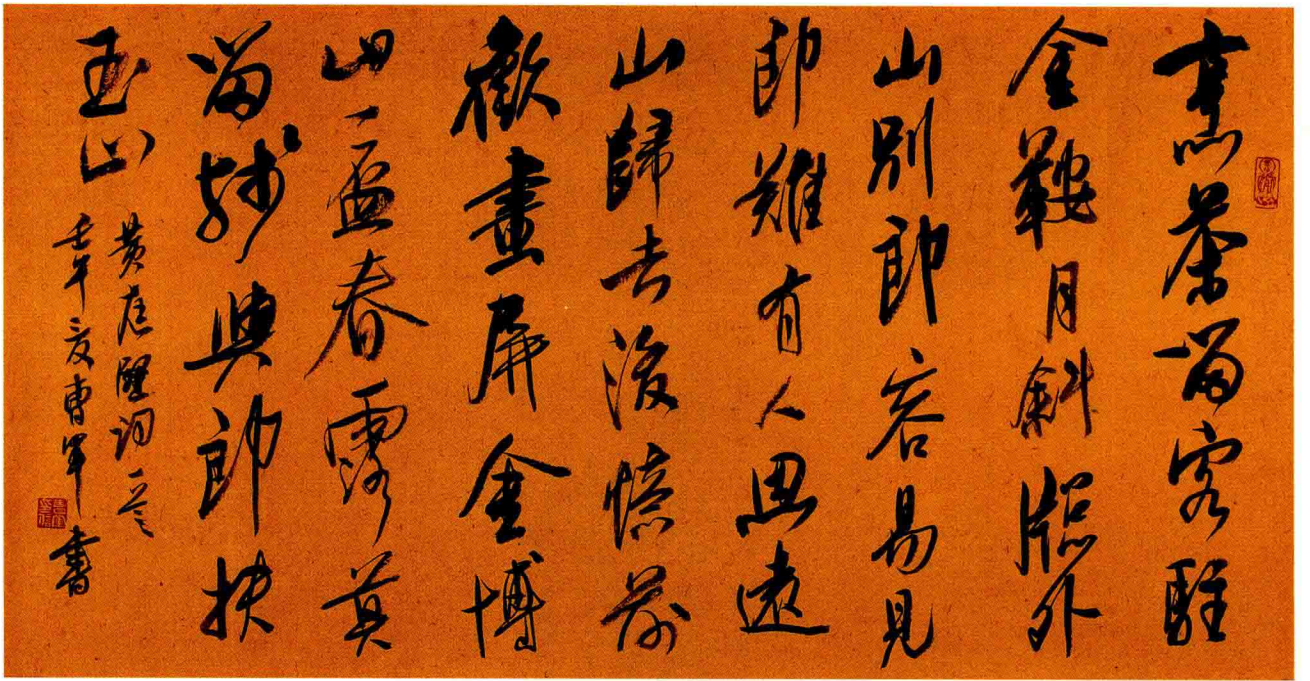 烹茶留客駐
金鞍月斜牕外
山別郎容易見
郎難有人思遠
山歸去後憶前
歡畫屏金博
山一盃春露莫
留殘與郎扶
玉山
黄庭堅詞一首
壬午夏曹軍書